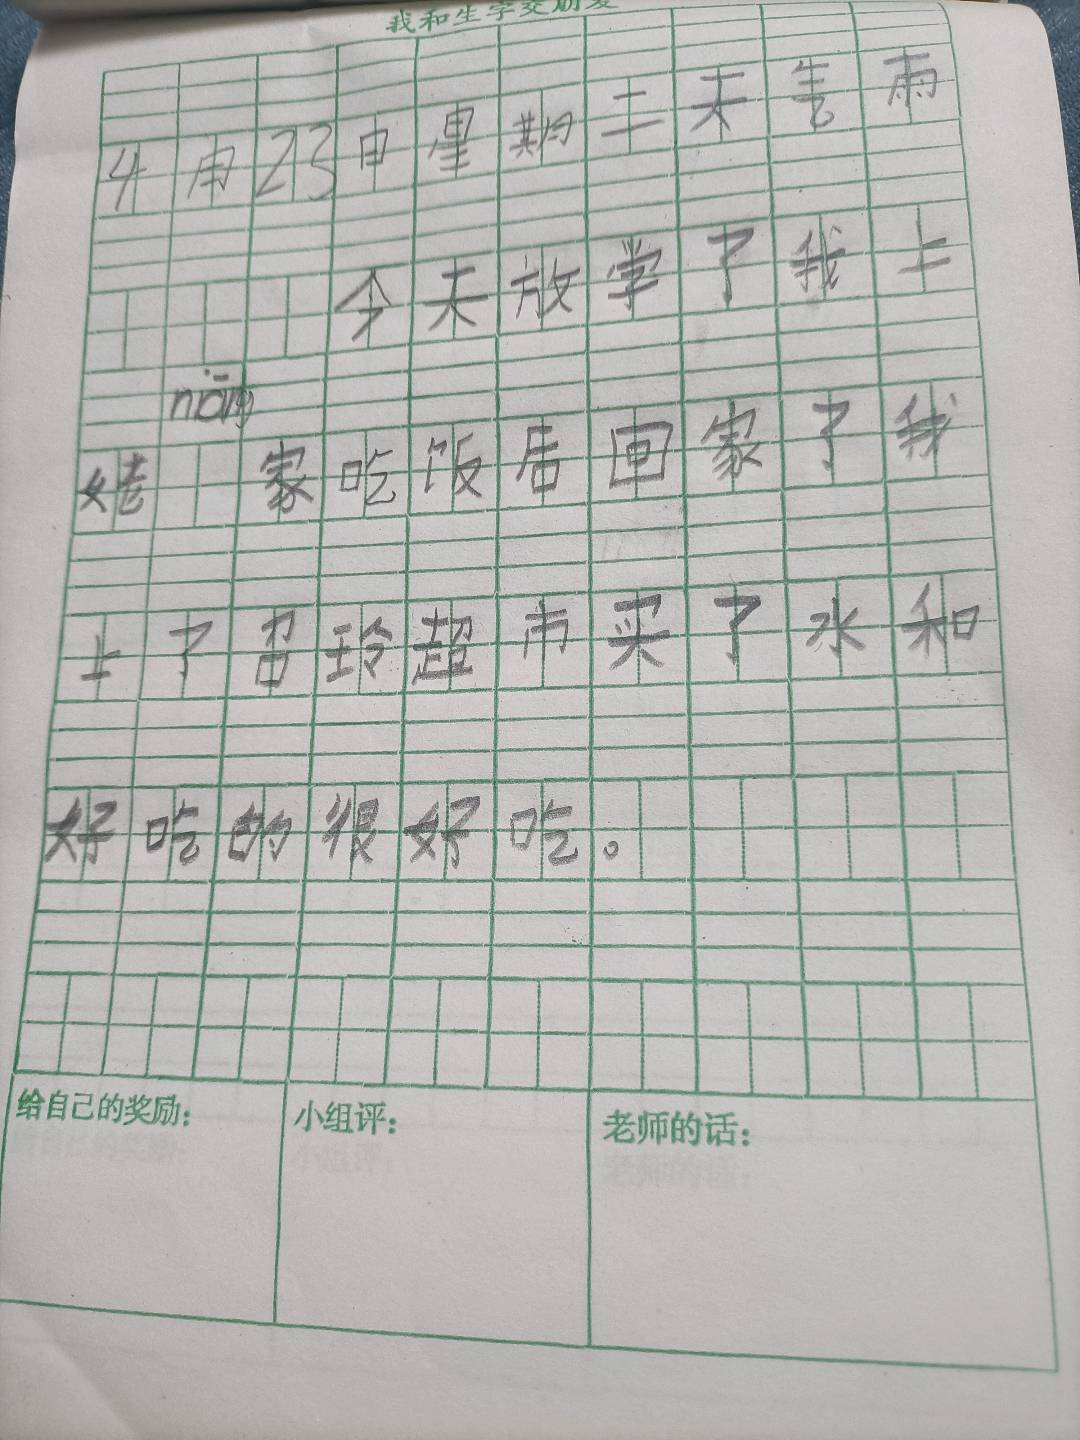 我和生字交朋友
4月23日星期二天气雨
今天放学了我上
niāng
姥 家吃饭后回家了我
上了召玲超市买了水和
好吃的很好吃。
给自己的奖励：
小组评：
老师的话：